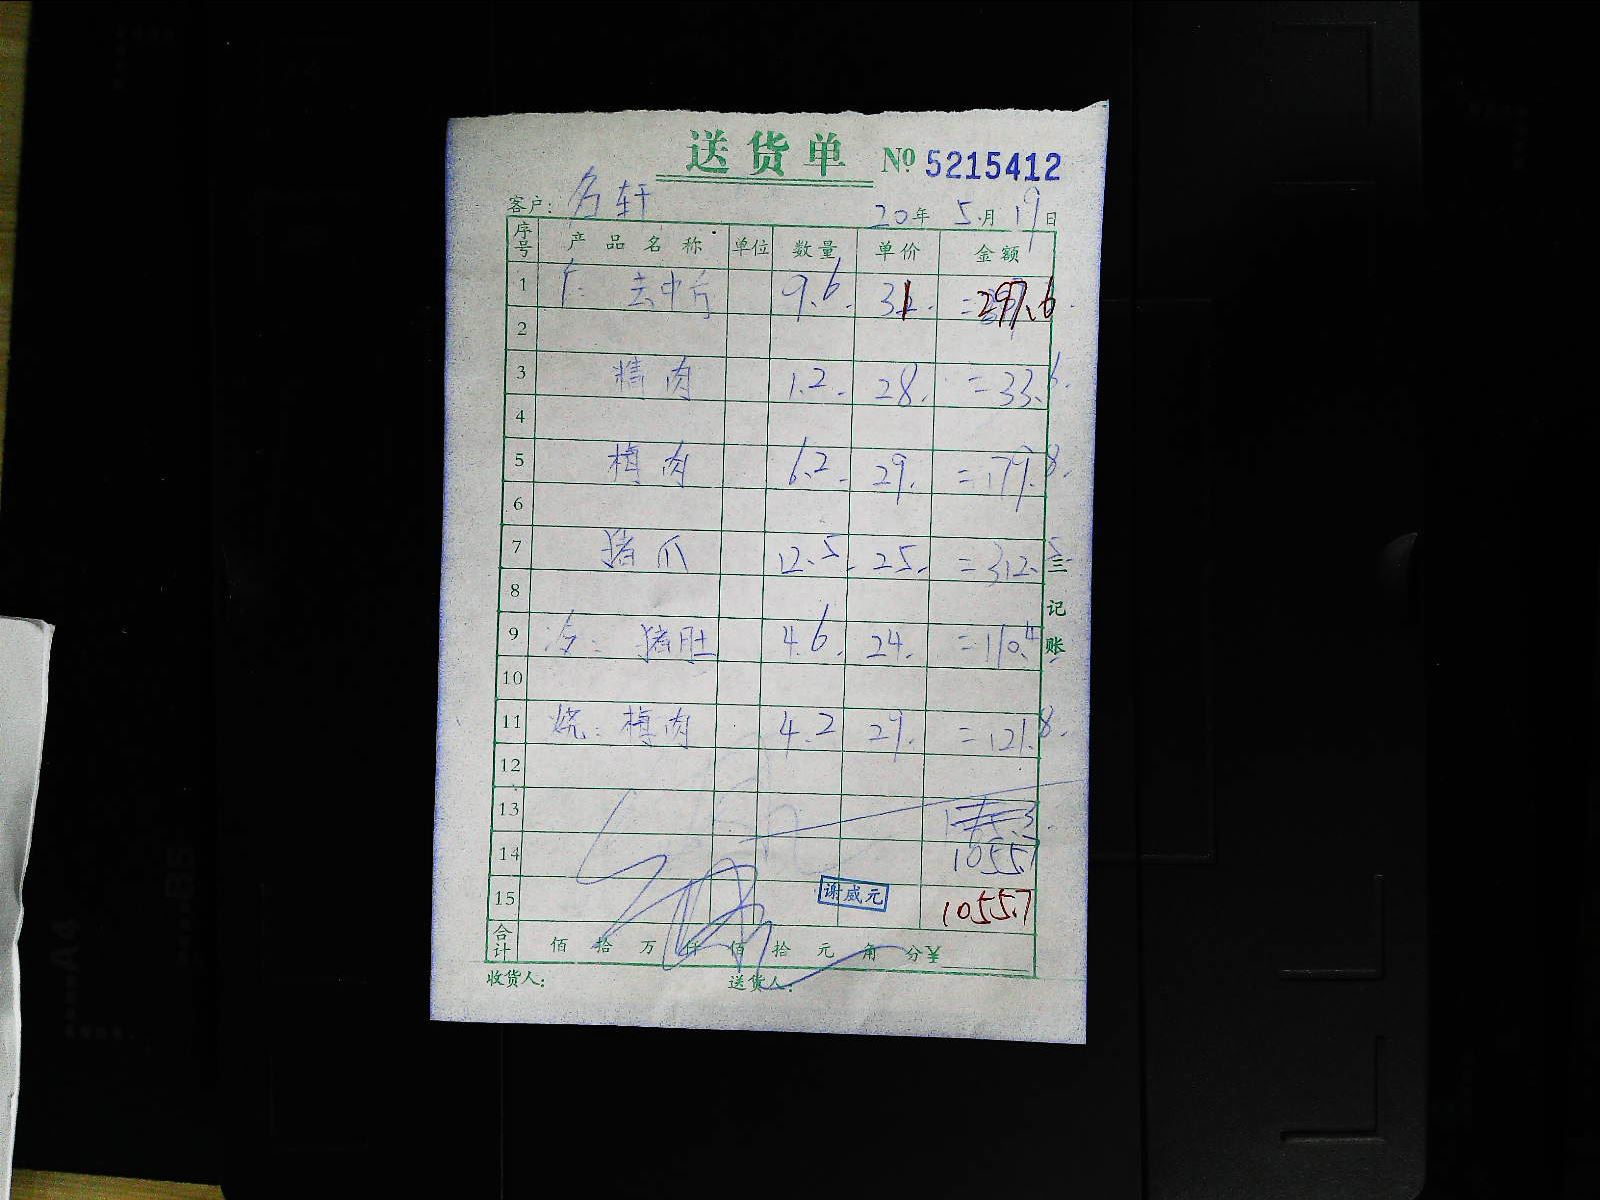 送货单 № 5215412
客户: 名轩 20年 5月 19日
序号 产品名称 单位 数量 单价 金额
1 去中方 9.6 31 =297.6
2
3 精肉 1.2 28. =33.6
4
5 梅肉 6.2 29. =179.8
6
7 猪爪 12.5 25. =312.5
8
9 冷: 猪肚 4.6 24. =110.4
10
11 烧: 梅肉 4.2 29. =121.8
12
13
14 1055.7
15 谢威元 1055.7
合计 佰 拾 万 仟 佰 拾 元 角 分 ¥
收货人: 送货人:
三
记
账